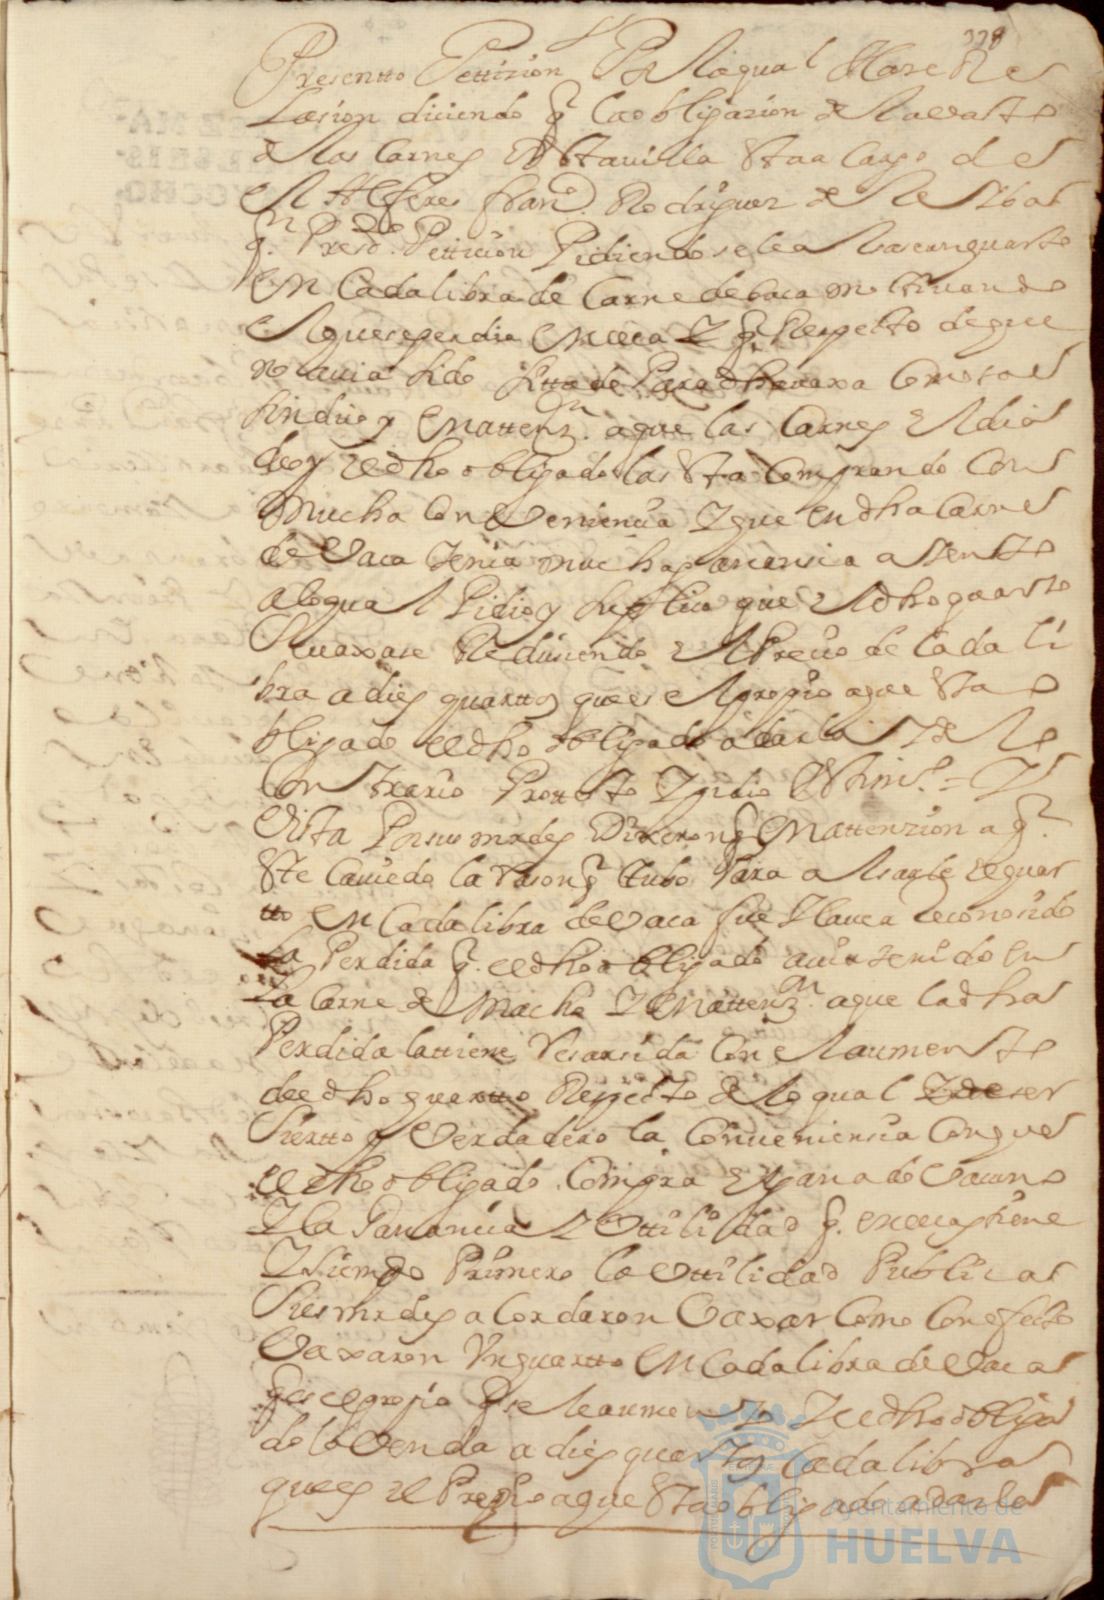 228
Presentto Pettizion Por la qual Haze Re
lasion diciendo q la obligazion de el abasto
de las Carnes de Sta villa Sta a Cargo de
el Alferes fran.co Rodriguez de
q Press.do Peticion Pidiendo se le alsase un quarto
en Cada libra de Carne de baca motivando
lo que se perdia en ella Y q Respecto de que
no avia sido para dha vaxa
sindico y en attenz.on a que las Carnes el dia
de oy el dho obligado las Sta Comprando Con
mucha Conveniencia Y que en dha Carne
de Vaca tenia mucha ganansia atento
a lo qual Pidio y suplico que el dho quarto
se vaxase Reduciendo el Precio de Cada li
bra a dies quarttos que es el propio a que Sta o
bligado el dho obligado a darla Y de lo
Contrario Protesto Y pidio testim.o = Y
Vista Por sus mrdes Dixeron q en attenzion a q.
Ste Cavildo la rason q tubo Para alsarle el quar
tto en Cada libra de Vaca fue Y lleva Reconosido
la Perdida q. el dho obligado avia tenido en
la Carne de Macho Y en attenz.on a que la dha
Perdida la tiene Resarsida Con el aumento
de el dho quartto Respecto de lo qual Y de ser
sierto y Verdadero la Conveniensia Con que
el dho obligado Compra el ganado Vacuno
Y la Ganancia Y Uttilidad q. en ella tiene
Y siendo Primero la Uttilidad Publica
Sus mrdes acordaron Vaxar Como Con efecto
Vaxaron Un quartto en Cada libra de Vaca
q es el propio q se le aumento Y el dho obliga
do la Venda a dies quarttos Cada libra
que es el Prezio a que Sta obligado a darla
Ayuntamiento de
HUELVA